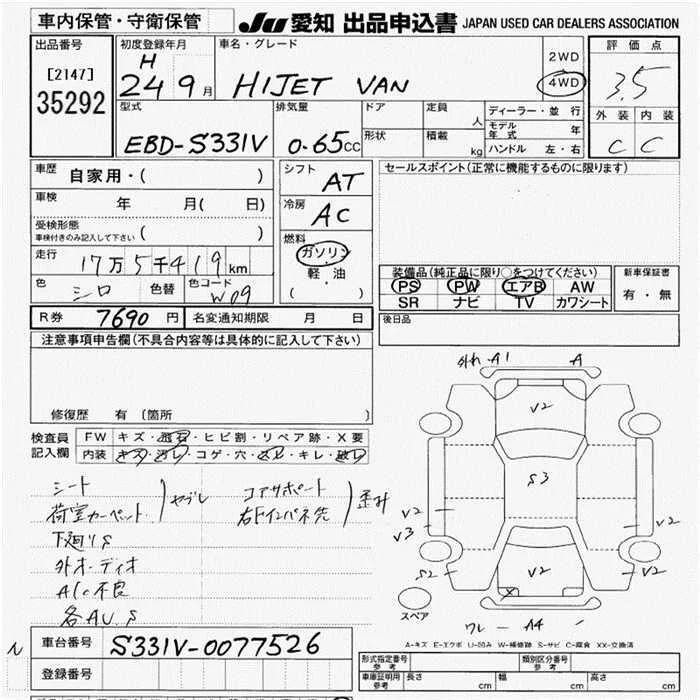 車内保管・守衛保管
JU 愛知 出品申込書 JAPAN USED CAR DEALERS ASSOCIATION
出品番号
[2147]
35292
初度登録年月
H
24 9 月
車名・グレード
HIJET VAN
2WD
4WD
評価点
3.5
外装 内装
C C
型式
EBD-S331V
排気量
0.65cc
ドア
形状
定員
人
積載
kg
ディーラー・並行
モデル年式 年
ハンドル 左・右
車歴
自家用・( )
車検
年 月( 日)
受検形態
車検付きのみ記入して下さい ( )
走行
17万5千419km
色
シロ
色替
色コード
W09
シフト
AT
冷房
AC
燃料
ガソリン
軽・油
( )
セールスポイント(正常に機能するものに限ります)
装備品(純正品に限り○をつけてください)
PS PW エアB AW
SR ナビ TV カワシート
新車保証書
有・無
R券 7690 円 名変通知期限 月 日
後日品
注意事項申告欄(不具合内容等は具体的に記入して下さい)
修復歴 有 〔箇所 〕
検査員
記入欄
FW キズ・飛石・ヒビ割・リペア跡・X要
内装 キズ・汚レ・コゲ・穴・スレ・キレ・破レ
シート
荷室カーペット )ヤブレ
コアサポート
右Fインパネ先 )歪み
下廻りS
外オーディオ
A/C不良
各AU.S
外れ A1 A
V2
S3
V2
V3
V2
S2
V2
V2
X
ワレ A4
スペア
A-キズ E-エクボ U-凹み W-補修跡 S-サビ C-腐食 XX-交換済
N
車台番号 S331V-0077526
登録番号
形式指定番号
参考
類別区分番号
参考
車庫証明用
参考
長さ cm 幅 cm 高さ cm